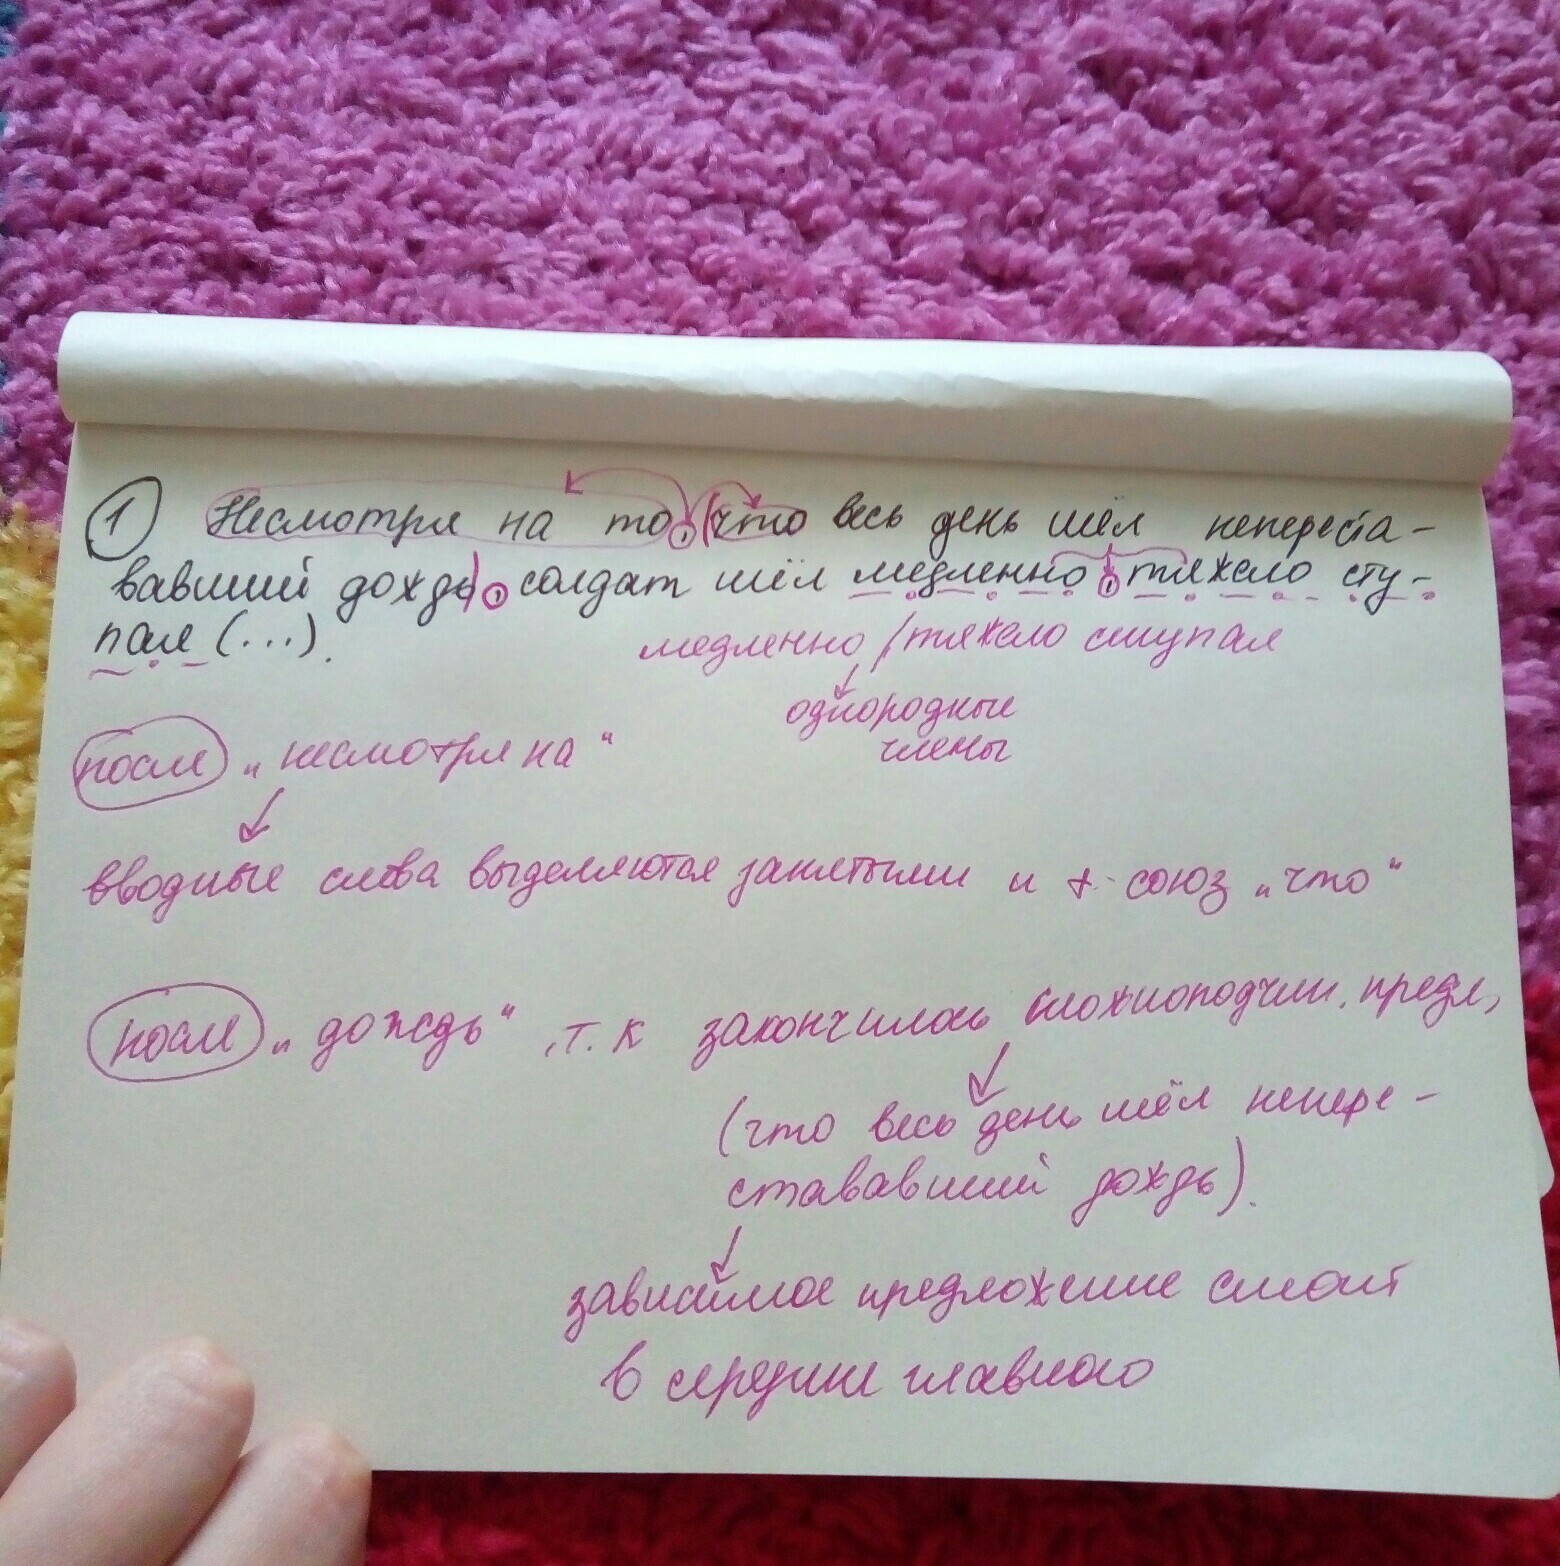 1 Несмотря на то, (что весь день шёл непереста-
вавший дождь), солдат шёл медленно, тяжело сту-
пая (...).
медленно / тяжело ступая
однородные
члены
после „несмотря на“
вводные слова выделяются запятыми и + союз „что“
после „дождь“, т. к закончилось сложноподчин. предл,
(что весь день шёл непере-
стававший дождь).
зависимое предложение стоит
в середине главного